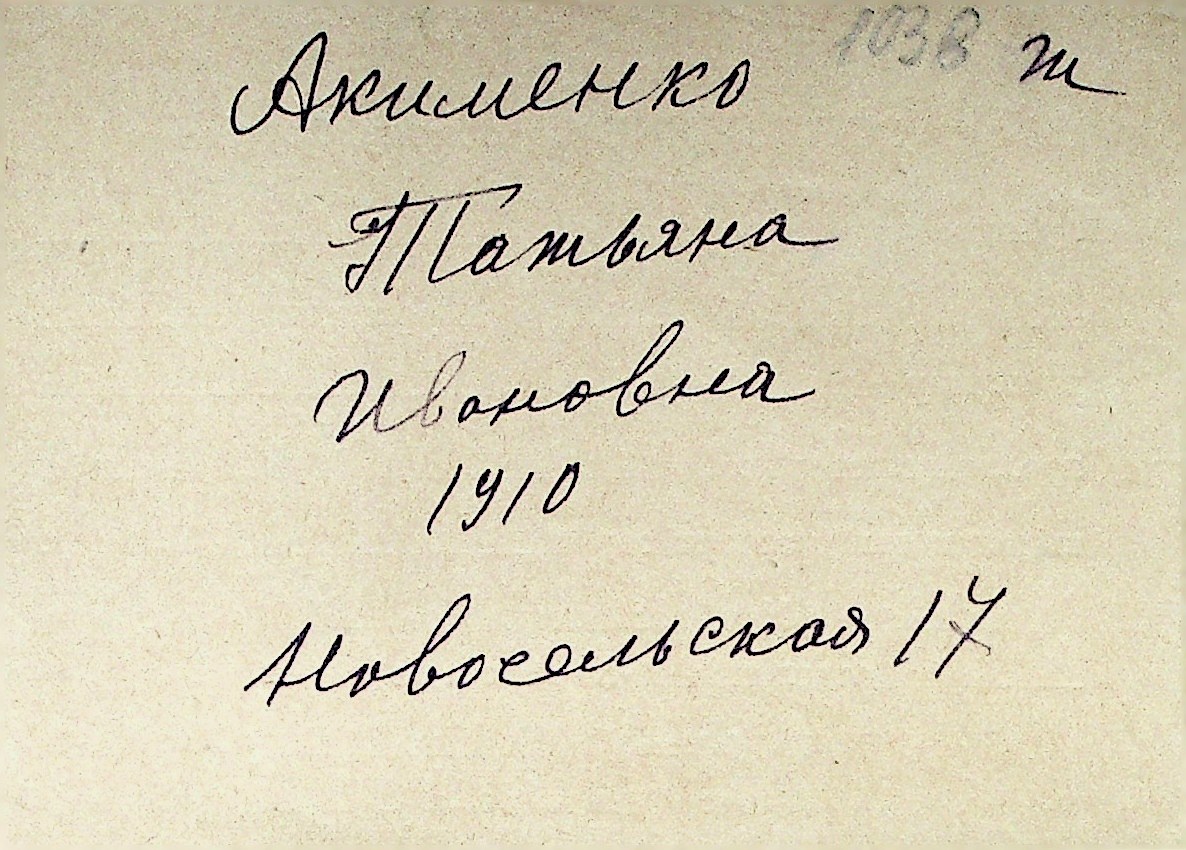 Акименко 103в т
Татьяна
Ивановна
1910
Новосельская 17